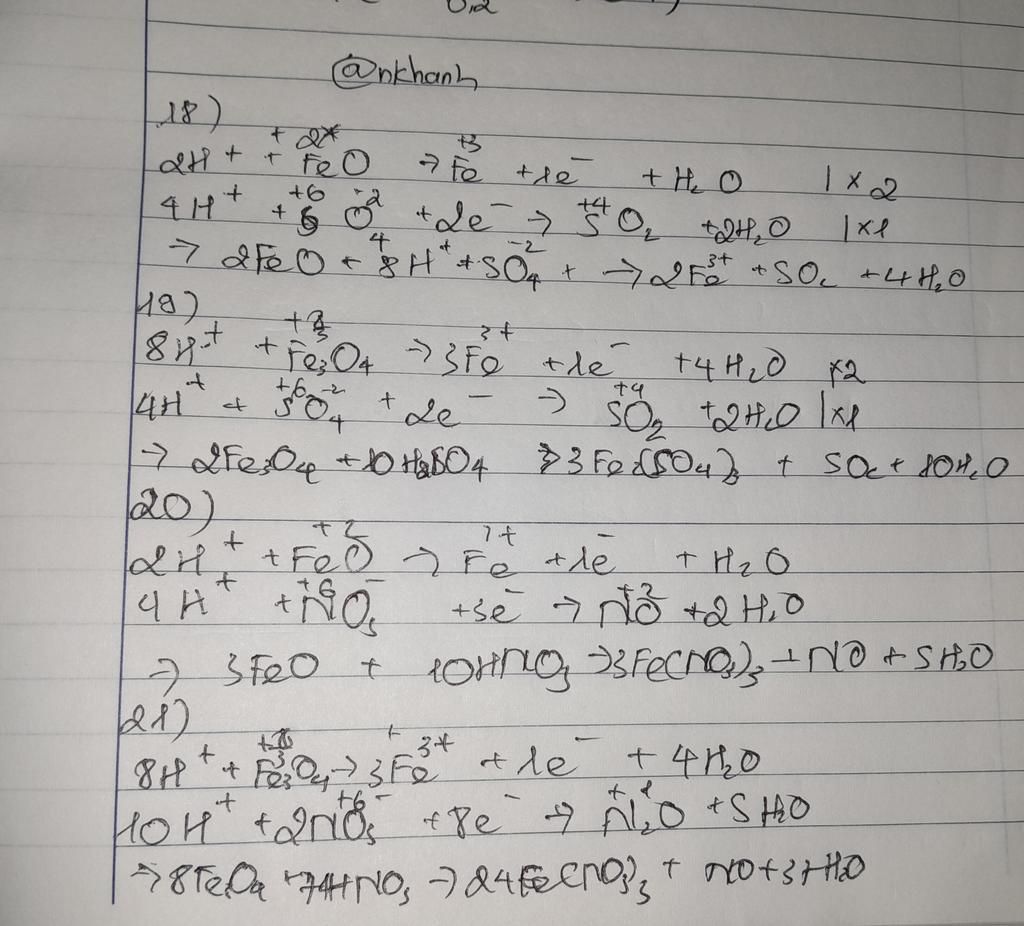 0,2
@nkhanh
18)
2H⁺ + Fe⁺²O → Fe⁺³ + 1e⁻ + H₂O | x 2
4H⁺ + S⁺⁶O₄⁻² + 2e⁻ → S⁺⁴O₂ + 2H₂O | x1
→ 2FeO + 8H⁺ + SO₄⁻² + → 2Fe³⁺ + SO₂ + 4H₂O
19)
8H⁺ + Fe₃O₄ → 3Fe³⁺ + 1e⁻ + 4H₂O x2
4H⁺ + S⁺⁶O₄⁻² + 2e⁻ → S⁺⁴O₂ + 2H₂O | x1
→ 2Fe₃O₄ + 10H₂SO₄ → 3Fe₂(SO₄)₃ + SO₂ + 10H₂O
20)
2H⁺ + Fe⁺²O → Fe + 1e⁻ + H₂O
4H⁺ + NO₃⁻ + 3e⁻ → N⁺²O + 2H₂O
→ 3FeO + 10HNO₃ → 3Fe(NO₃)₃ + NO + 5H₂O
21)
8H⁺ + Fe₃O₄ → 3Fe³⁺ + 1e⁻ + 4H₂O
10H⁺ + 2NO₃⁻ + 8e⁻ → N₂⁺¹O + 5H₂O
→ 8Fe₃O₄ + 74HNO₃ → 24Fe(NO₃)₃ + NO + 37H₂O